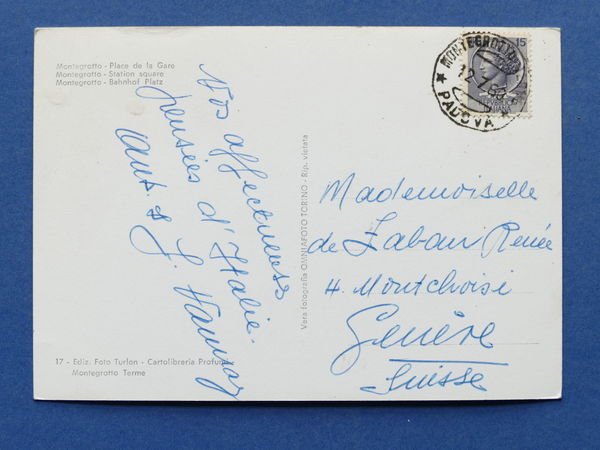 Montegrotto - Place de la Gare
Montegrotto - Station square
Montegrotto - Bahnhof Platz
Nos affectueuses
pensées d'Italie.
Vera fotografia OMNIAFOTO TORINO - Rip. vietata
15
MONTEGROTTO
PADOVA
Mademoiselle
de Laban Renée
4 Montchoisi
Genève
Suisse
17 - Ediz. Foto Turlon - Cartolibreria Profumi
Montegrotto Terme